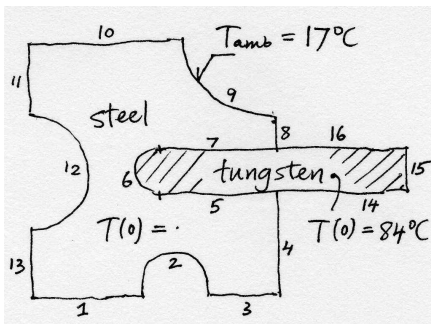 10
T_amb = 17°C
11
9
steel
8
7
16
12
6
tungsten
15
5
14
T(0) = .
T(0) = 84°C
4
13
2
1
3